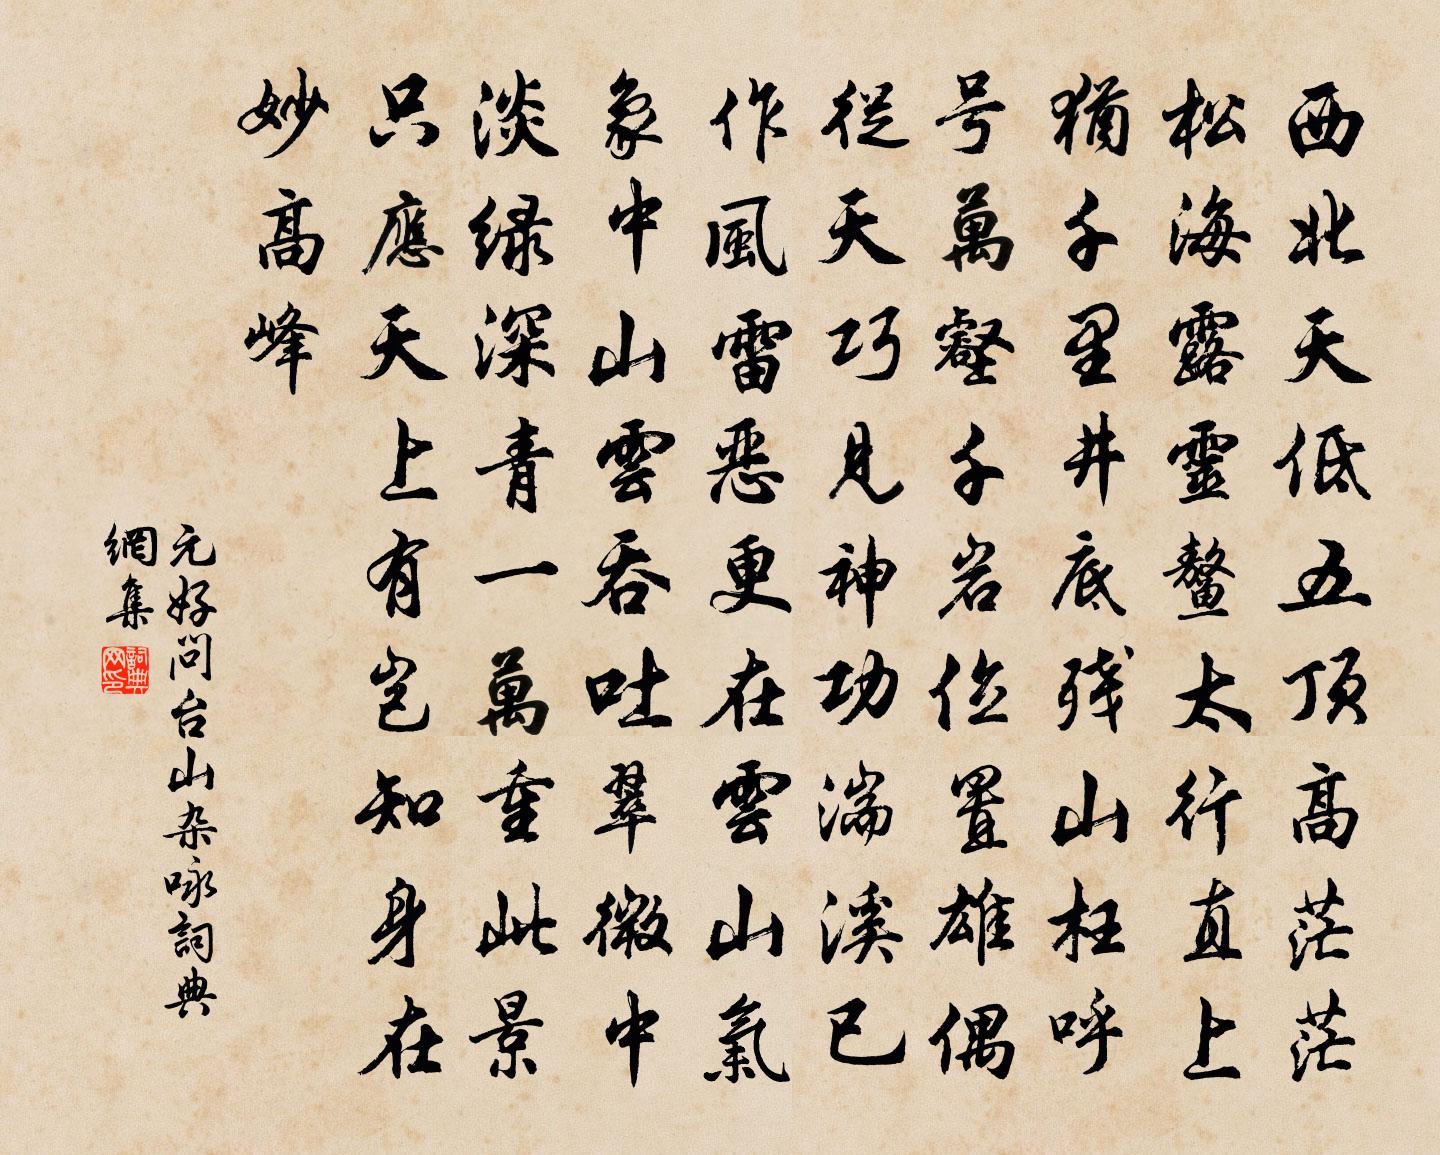 西北天低五顶高茫茫
松海露靈鳌太行直上
猶千里井底残山枉呼
号萬壑千岩位置雄偶
從天巧見神功湍溪已
作風雷恶更在雲山氣
象中山雲吞吐翠微中
淡绿深青一萬重此景
只應天上有岂知身在
妙高峰
元好问台山杂咏詞典
網集
詞典网印